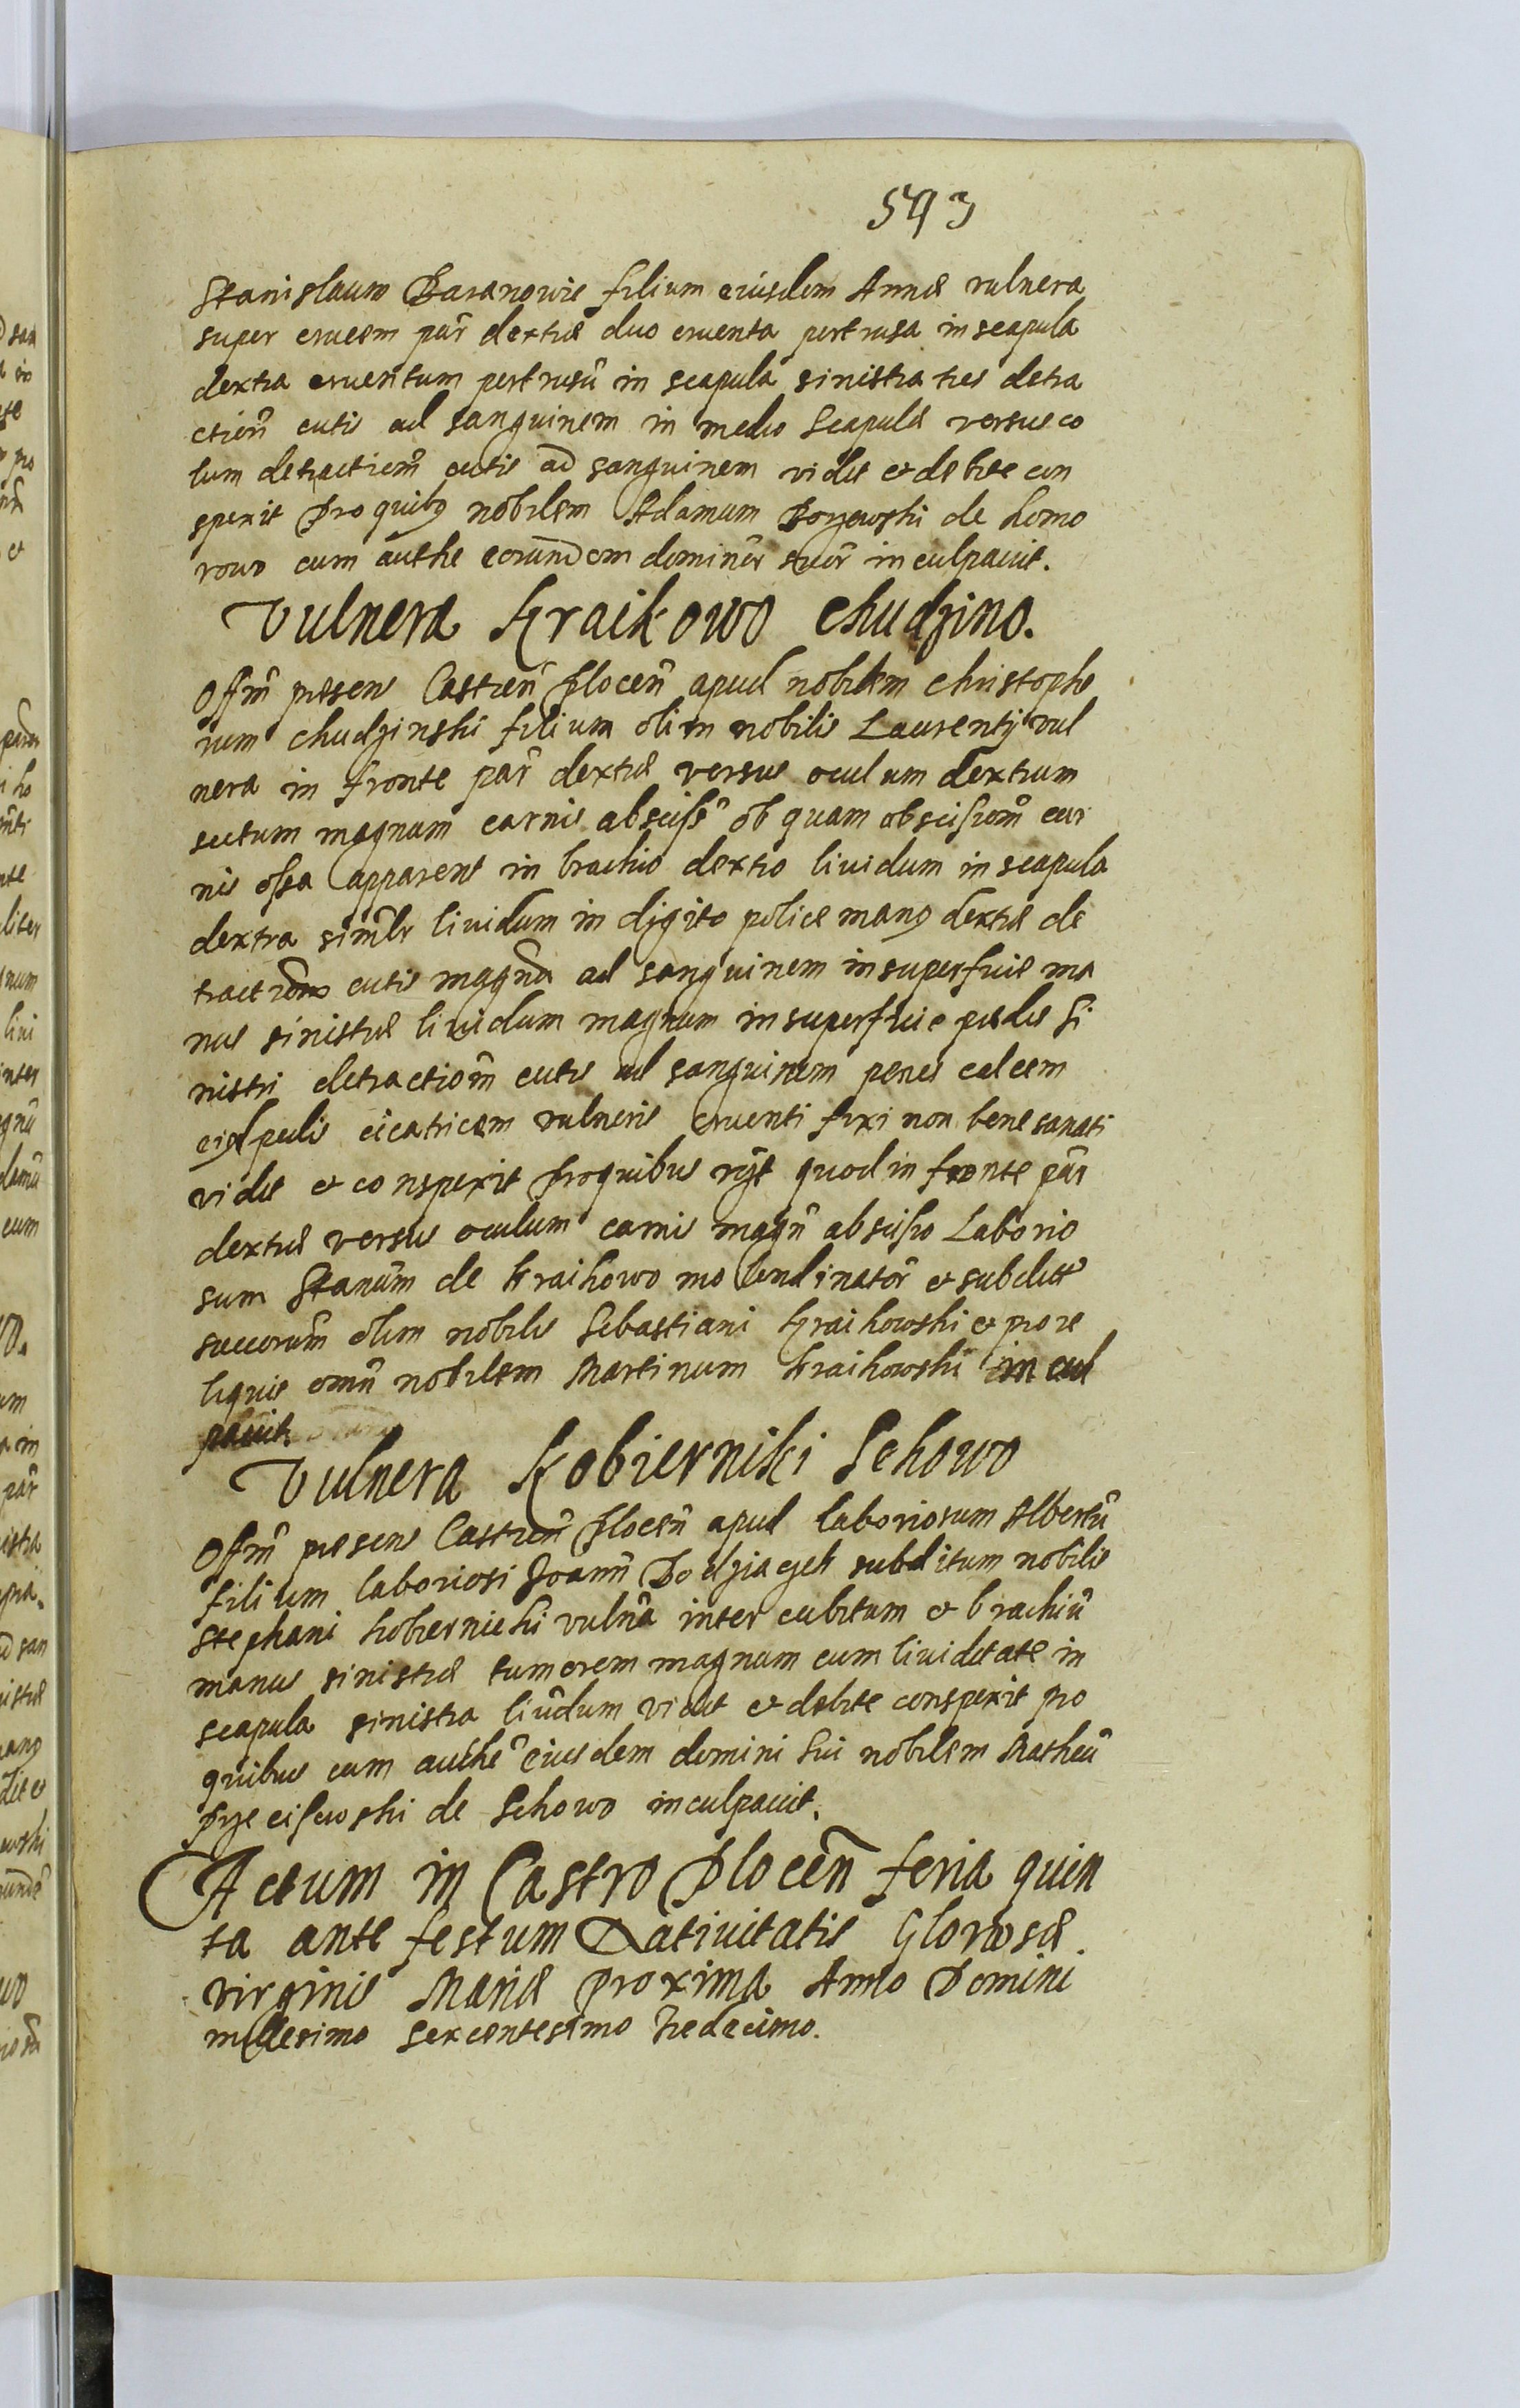 593
Stanislaum Baranowic filium eiusdem Annæ vulnera
super crucem par̃ dextræ duo cruenta pertrusa in scapula
dextra cruentum pertrusũ in scapula sinistra tres detra
ctioñ cutis ad sanguinem in medio scapulæ versus co
lum detractionẽ cutis ad sanguinem vidit et debite con
spexit Pro quibꝰ nobilem Adamum de Komo
rowo cum authe eorundem dominor̃ suor̃ inculpauit.
Vulnera Kraikowo Chudzino.
Offm̃ præsens Castren̄ Plocen̄ apud nobilem Christopho
rum Chudzinski filium olim nobilis Laurentij vul
nera in fronte par̃ dextræ versus oculum dextrum
sectum magnum carnis absciss̃ ob quam abscissionẽ car
nis ossa apparent in brachio dextro liuidum in scapula
dextra simlr̃ liuidum in digito police manꝰ dextræ de
tractionẽ cutis magnã ad sanguinem in superficie ma
nus sinistræ liuidum magnum in superficie pedis si
nistri detractionẽ cutis ad sanguinem penes calcem
eisd pedis cicatricem vulneris cruenti fixi non bene sanati
vidit et conspexit Pro quibus quod in fronte par̃
dextræ versus oculum carnis magñ abscissio Laborio
sum Stanũm de Kraikowo molendinator̃ et subditũ
succorum̃ olim nobilis Sebastiani Kraikowski et pro re
liquis omñ nobilem Martinum Kraikowski incul
pauit.
Vulnera Kobierniki Sekowo
Offm̃ præsens Castren̄ Plocen̄ apud laboriosum Albertũ
filium laboriosi Joanñ subditum nobilis
Stephani Kobiernicki vulnã inter cubitum et brachiũ
manus sinistræ tumorem magnum cum liuiditate in
scapula sinistra liuidum vidit et debite conspexit pro
quibus cum authẽ eiusdem domini sui nobilem Matheũ
Przeciszewski de Sekowo inculpauit.
Actum in Castro Plocen̄ feria quin
ta ante festum Natiuitatis Gloriosæ
virginis Mariæ proxima Anno Domini
millesimo sexcentesimo tredecimo.